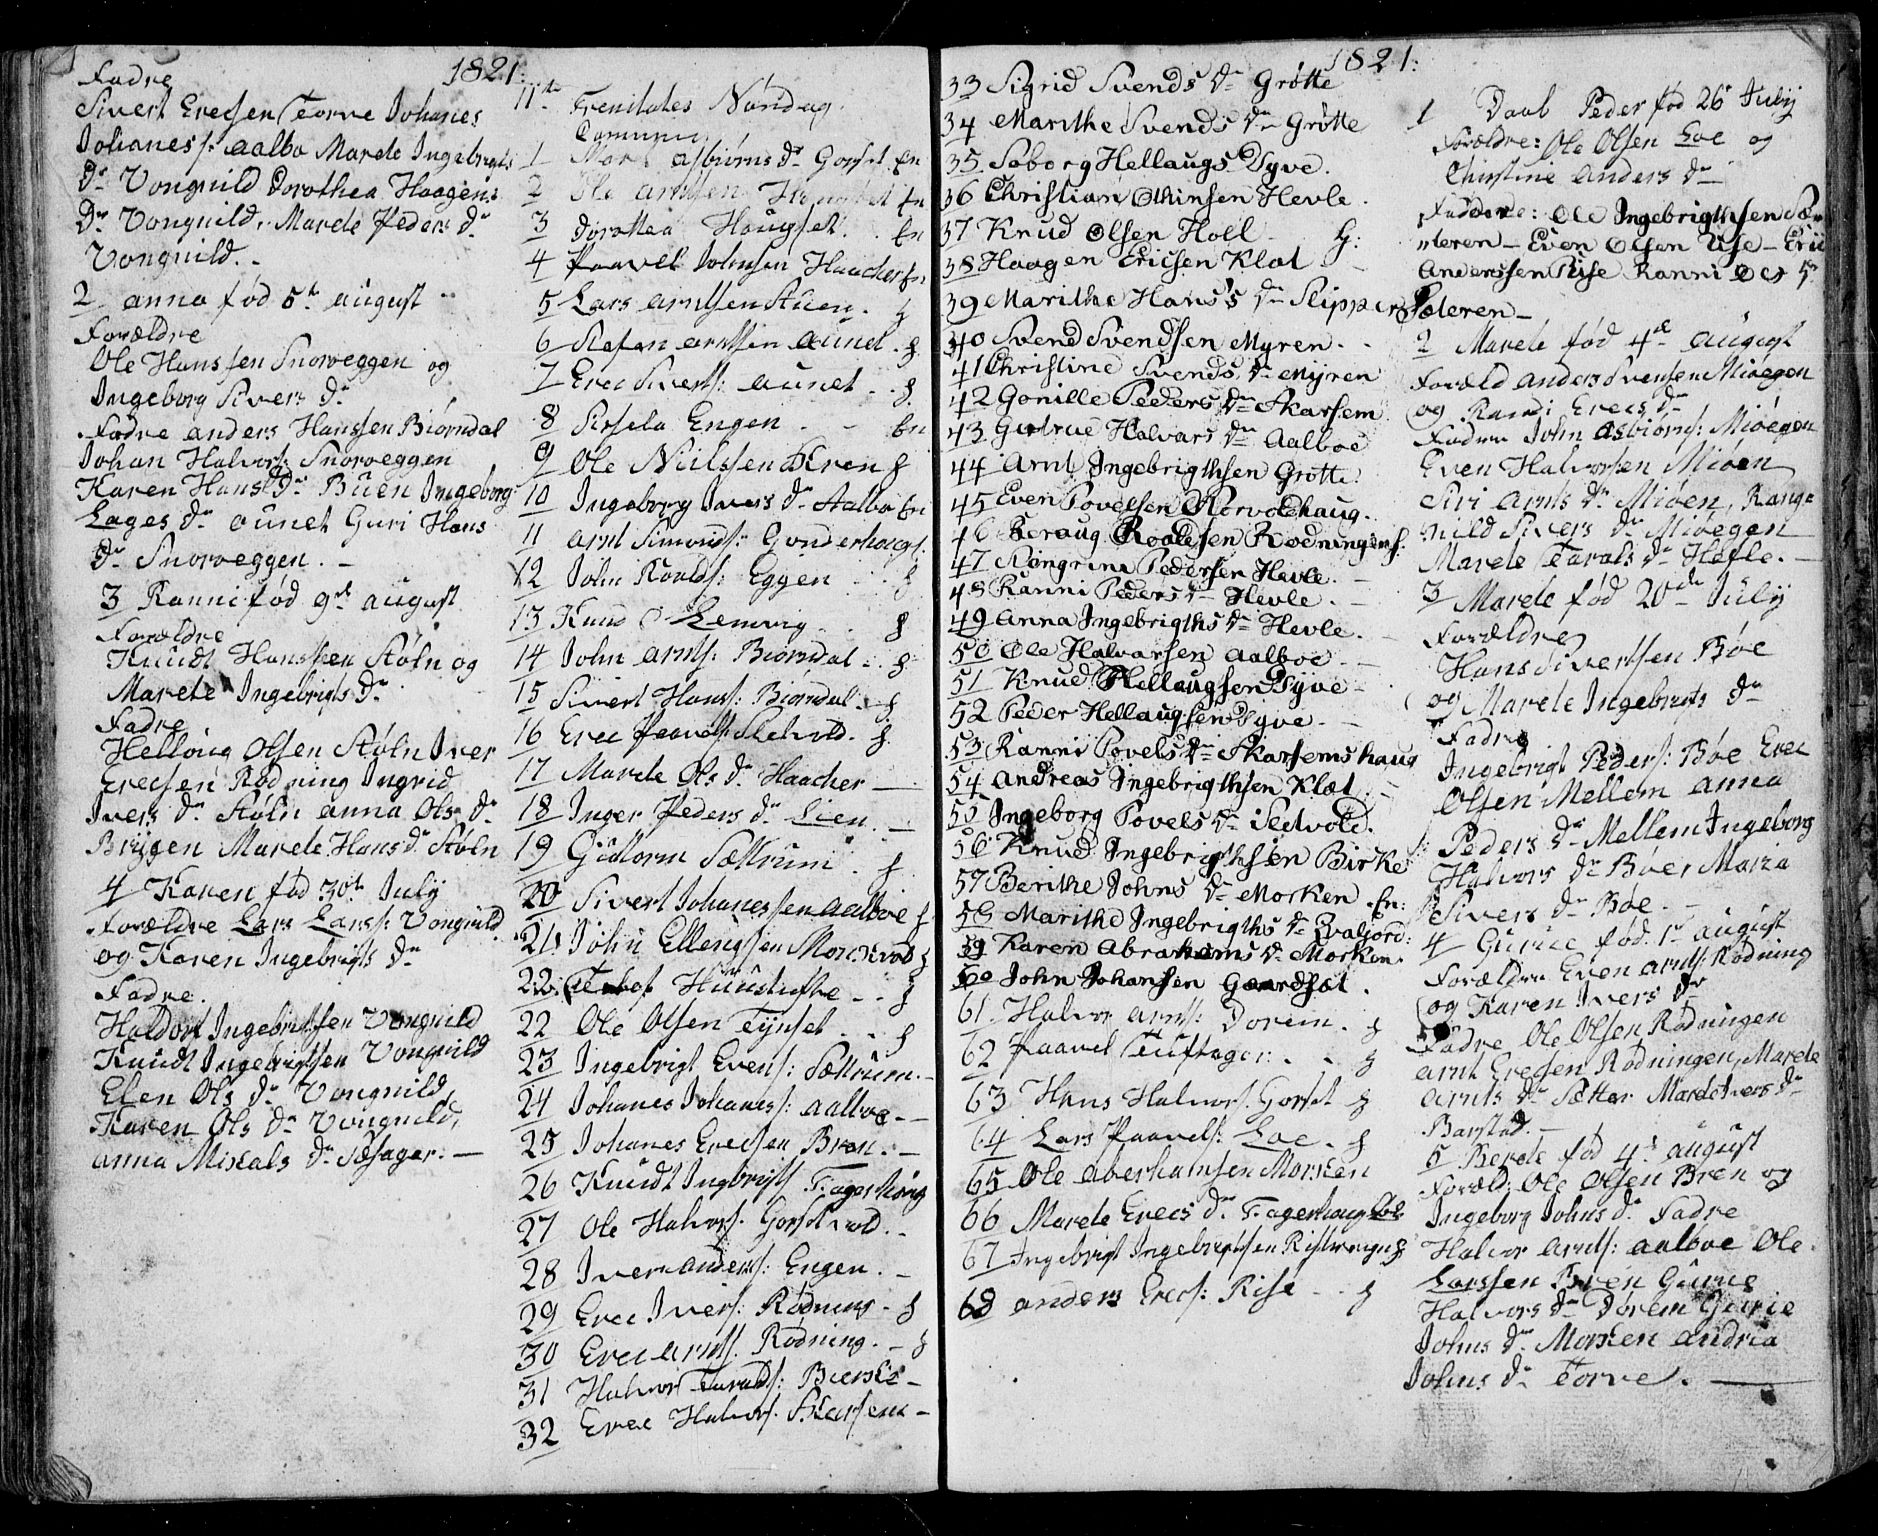 1821:
Fadre
Sivert Erecsen Torve Johanes
Johaness: Aalbo Marete Ingebrigts
Dr Vongnild Dorothea Haagens
Dr Vongnild, Marete Peders Dr
Vongnild. -
2 Anna fød 5te August
Forældre
Ole Hanssen Snoveggen og
Ingeborg Sivers Dr
Fadre Anders Hanssen Biørndal
Johan Halvors: Snoveggen
Karen Hans Dr Buen Ingeborg
Lages Dr Aunet Guri Hans
Dr Snoveggen. -
3 Ranni fød 9de August
Forældre
Knudt Hanssen Støln og
Marete Ingebrigts Dr
Fadre
Helloug Olsen Støln Iver
Erecsen Rødning Ingrid
Ivers Dr Støln Anna Ols Dr
Brygen Marete Hans Dr Støln
4 Karen fød 30te July
Forældre Lars Larss: Vongnild
og Karen Ingebrigts Dr
Fadre.
Haldort Ingebrigtsen Vongnild
Knudt Ingebrigtsen Vongnild
Elen Ols Dr Vongnild,
Karen Ols Dr Vongnild,
Anna Mikals Dr Sæsager: -
11te Trenitates Søndag.
1 Mar Asbiørns Dr Gorset En
2 Ole Arntsen En
3 Dorothea Haugset. En
4 Paavel Johnsen Haacher En
5 Lars Arntsen Stuen. f
6 Stefan Arntsen Aunet. f
7 Erec Siverts: Aunet. . f
8 Sissela Engen . - En
9 Ole Nielssen Bren f
10 Ingeborg Ivers Dr Aalbo En
11 Arnt Simonds: Gunderhaug f.
12 John Roalds: Eggen . . f
13 Knud O Lemvig . . f
14 John Arnts: Biørndal . f
15 Sivert Hans: Biørndal . f
16 Erec Paavels: Sletvold. f.
17 Marete Ols Dr Haacher -
18 Inger Peders Dr Lien. -
19 Guttorm Sættrum . f.
20 Sivert Johanessen Aalboe f
21 John Ellengsen f
22. Hunstufte . . f
22 Ole Olsen Tynset . . f
23 Ingebrigt Evens: Sættrum. -
24 Johanes Johaness: Aalboe - -
25 Johanes Erecsen Bren. . -
26 Knudt Ingbrigts Fagerhoug
27 Ole Halvors. Gorsetvold. -
28 Iver Anders: Engen. -
29 Erec Ivers: Rødning. - f
30 Erec Arnts. Rødning. - f
31 Halvor Tarralds: Bierke -
32 Erec Halvors. Skarsem -
1821:
33 Sigrid Svends Dr Grøtte
34 Marithe Svends Dr Grøtte
35. Seborg Hellaugs Dr Syve.
36 Christian Othinsen Hevle.
37 Knud Olsen Holl f:
38 Haagen Ericsen Klæt -
39 Marithe Hans's Dr Slipper
40 Svend Svendsen Myren. .
41 Christine Svends Dr Myren
42 Gonille Peders Dr Skarsem
43 Gertrue Halvars Dr Aalboe
44 Arnt Ingebrigthsen Grøtte.
45 Even Povelsen Norvoldhaug.
46 Roaldsen Rødningen f.
47 Pedersen Hevle. -
48 Ranni Peders Dr Hevle. -
49 Anna Ingebrigths Dr Hevle. -
50 Ole Halvarsen Aalboe. -
51 Knud Hellaugsen Syve -
52 Peder Hellaugsen Syve. -
53 Ranni Povels Dr Skarsemshaug
54 Andreas Ingebrigthsen Klæt . -
55 Ingeborg Povels Dr Sletvold.
56 Knud Ingebrigthsen Birke
57 Berithe Johns Dr Morken. En:
58 Marithe Ingebrigths Dr
59 Karen Abrahams Dr Morken.
60 John Johansen Gaardsæt.
61. Halvor Arnts: Dorem. f
62 Paavel Tuftager: . . f
63 Hans Halvors. Gorset f
64 Lars Paavels: Loe. f
65 Ole Aberhamsen Morken
66 Marete Erecs Dr Fagerhaug
67 Ingebrigt Ingebrigtsen f
68 Anders Erecs: Rise - . f
1 Daab Peder fød 26 July
Forældre: Ole Olsen Loe og
Christine Anders Dr
Faddere: Ole Ingebrigthsen Sæ-
teren - Even Olsen Use - Eric
Anderssen Rise Ranni Ols Dr
Sæteren -
2 Marete fød 4de August
Foræld Anders Svensen Miøegen
og Randi Erecs Dr
Fadere John Asbiørns: Miøegen
Even Halvorsen Miøen
Siri Arnts Dr Miøen, Rang-
nild Sivers Dr Miøegen
Marete Taralds Dr Hefle. -
3 Marete fød 20de July
Forældre
Hans Sivertsen Bøe
og Marete Ingebrigts Dr
Fadre
Ingebrigt Peders: Bøe Erec
Olsen Mellem Anna
Peders Dr Mellem Ingeborg
Halvors Dr Bøe, Maria
Sivers Dr Bøe. -
4 Gurue fød 1te August
Forældre Even Arnts: Rødning
og Karen Ivers Dr
Fadre Ole Olsen Rødningen
Arnt Erecsen Rødningen, Marete
Arnts Dr Sætter Marete Ivers Dr
Barstad. -
5 Berete fød 4de August
Foræld: Ole Olsen Bren og
Ingeborg Johns Dr Fadre
Halvor Arnts: Aalboe Ole
Larssen Bren Gurue
Halvors Dr Dorem Gurie
Johns Dr Morken Andria
Johns Dr Torve. -